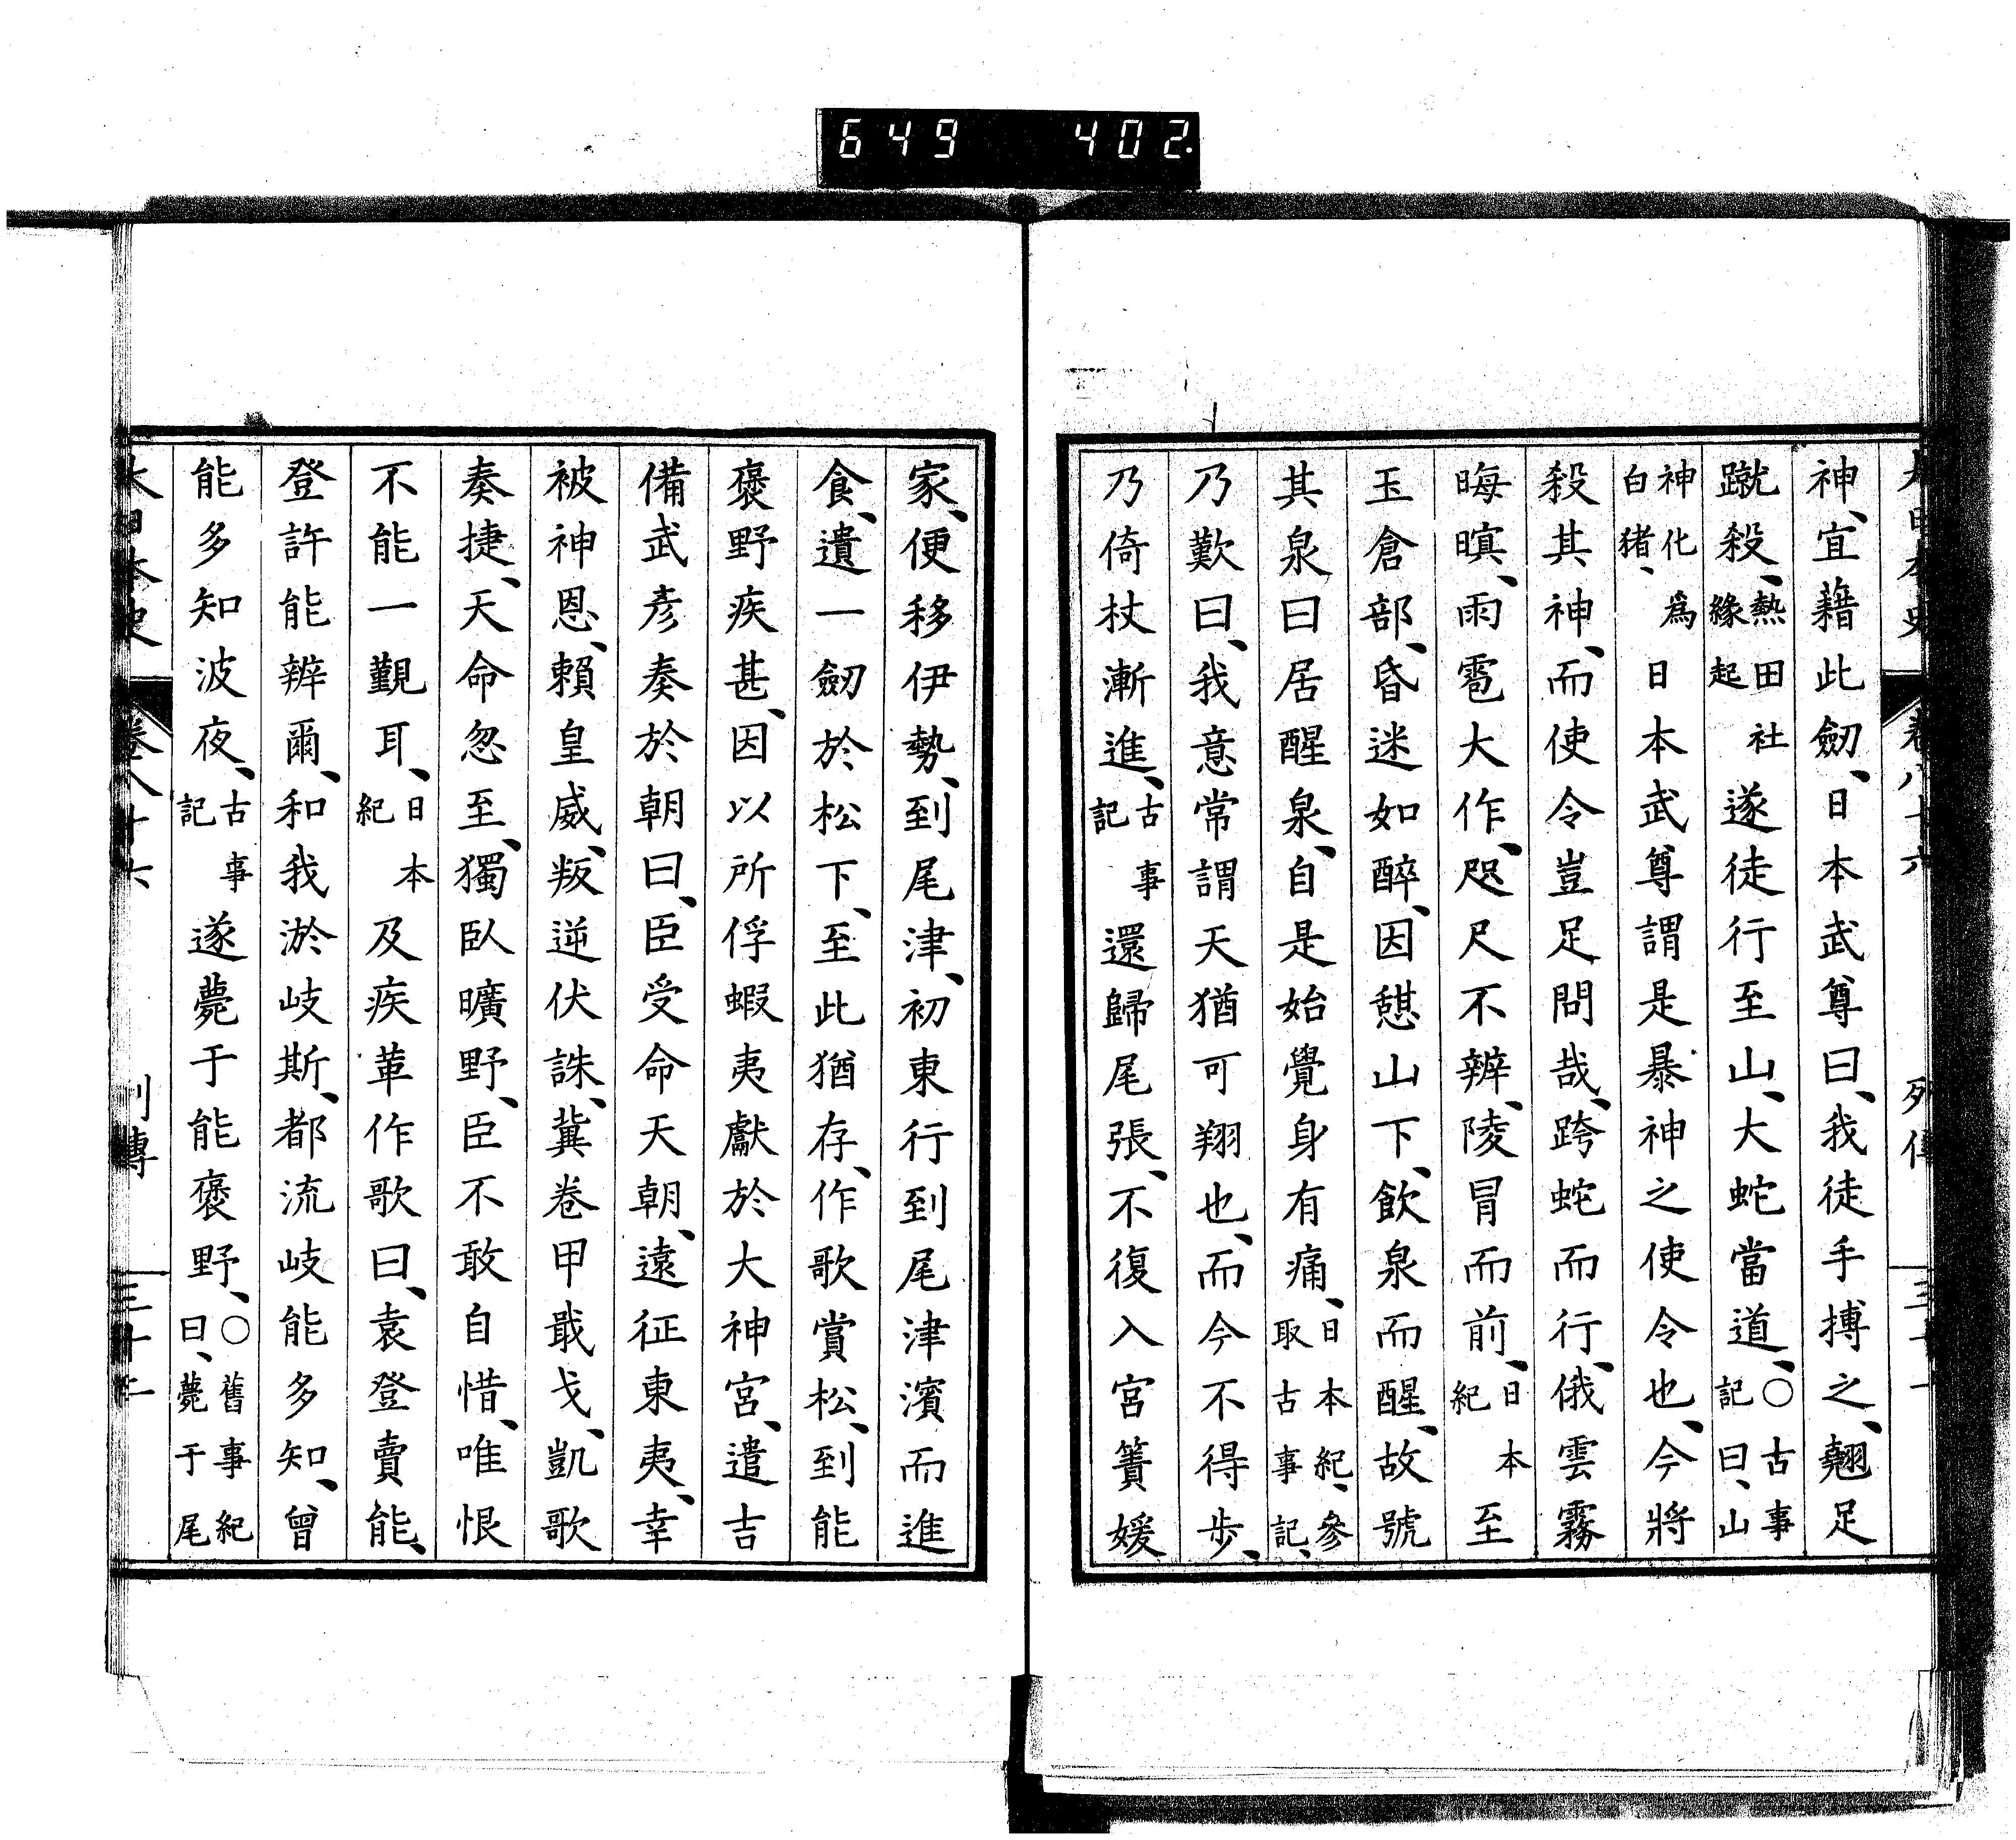 649 402
大日本史 卷八十六 列傳 三十一
神、宜藉此劒、日本武尊曰、我徒手搏之、翹足
蹴殺、熱田社緣起遂徒行至山、大蛇當道、〇古事記曰、山
神化爲白猪、日本武尊謂是暴神之使令也、今將
殺其神、而使令豈足問哉、跨蛇而行、俄雲霧
晦暝、雨雹大作、咫尺不辨、陵冒而前、日本紀至
玉倉部、昏迷如醉、因憇山下、飲泉而醒、故號
其泉曰居醒泉、自是始覺身有痛、日本紀、參取古事記、
乃歎曰、我意常謂天猶可翔也、而今不得步、
乃倚杖漸進、古事記還歸尾張、不復入宮簀媛
家、便移伊勢、到尾津、初東行到尾津濱而進
食、遺一劒於松下、至此猶存、作歌賞松、到能
褒野疾甚、因以所俘蝦夷獻於大神宮、遣吉
備武彥奏於朝曰、臣受命天朝、遠征東夷、幸
被神恩、賴皇威、叛逆伏誅、冀卷甲戢戈、凱歌
奏捷、天命忽至、獨臥曠野、臣不敢自惜、唯恨
不能一覲耳、日本紀及疾革作歌曰、袁登賣能、
登許能辨爾、和我淤岐斯、都流岐能多知、曾
能多知波夜、古事記遂薨于能褒野、〇舊事紀曰、薨于尾
大日本史 卷八十六 列傳 三十二